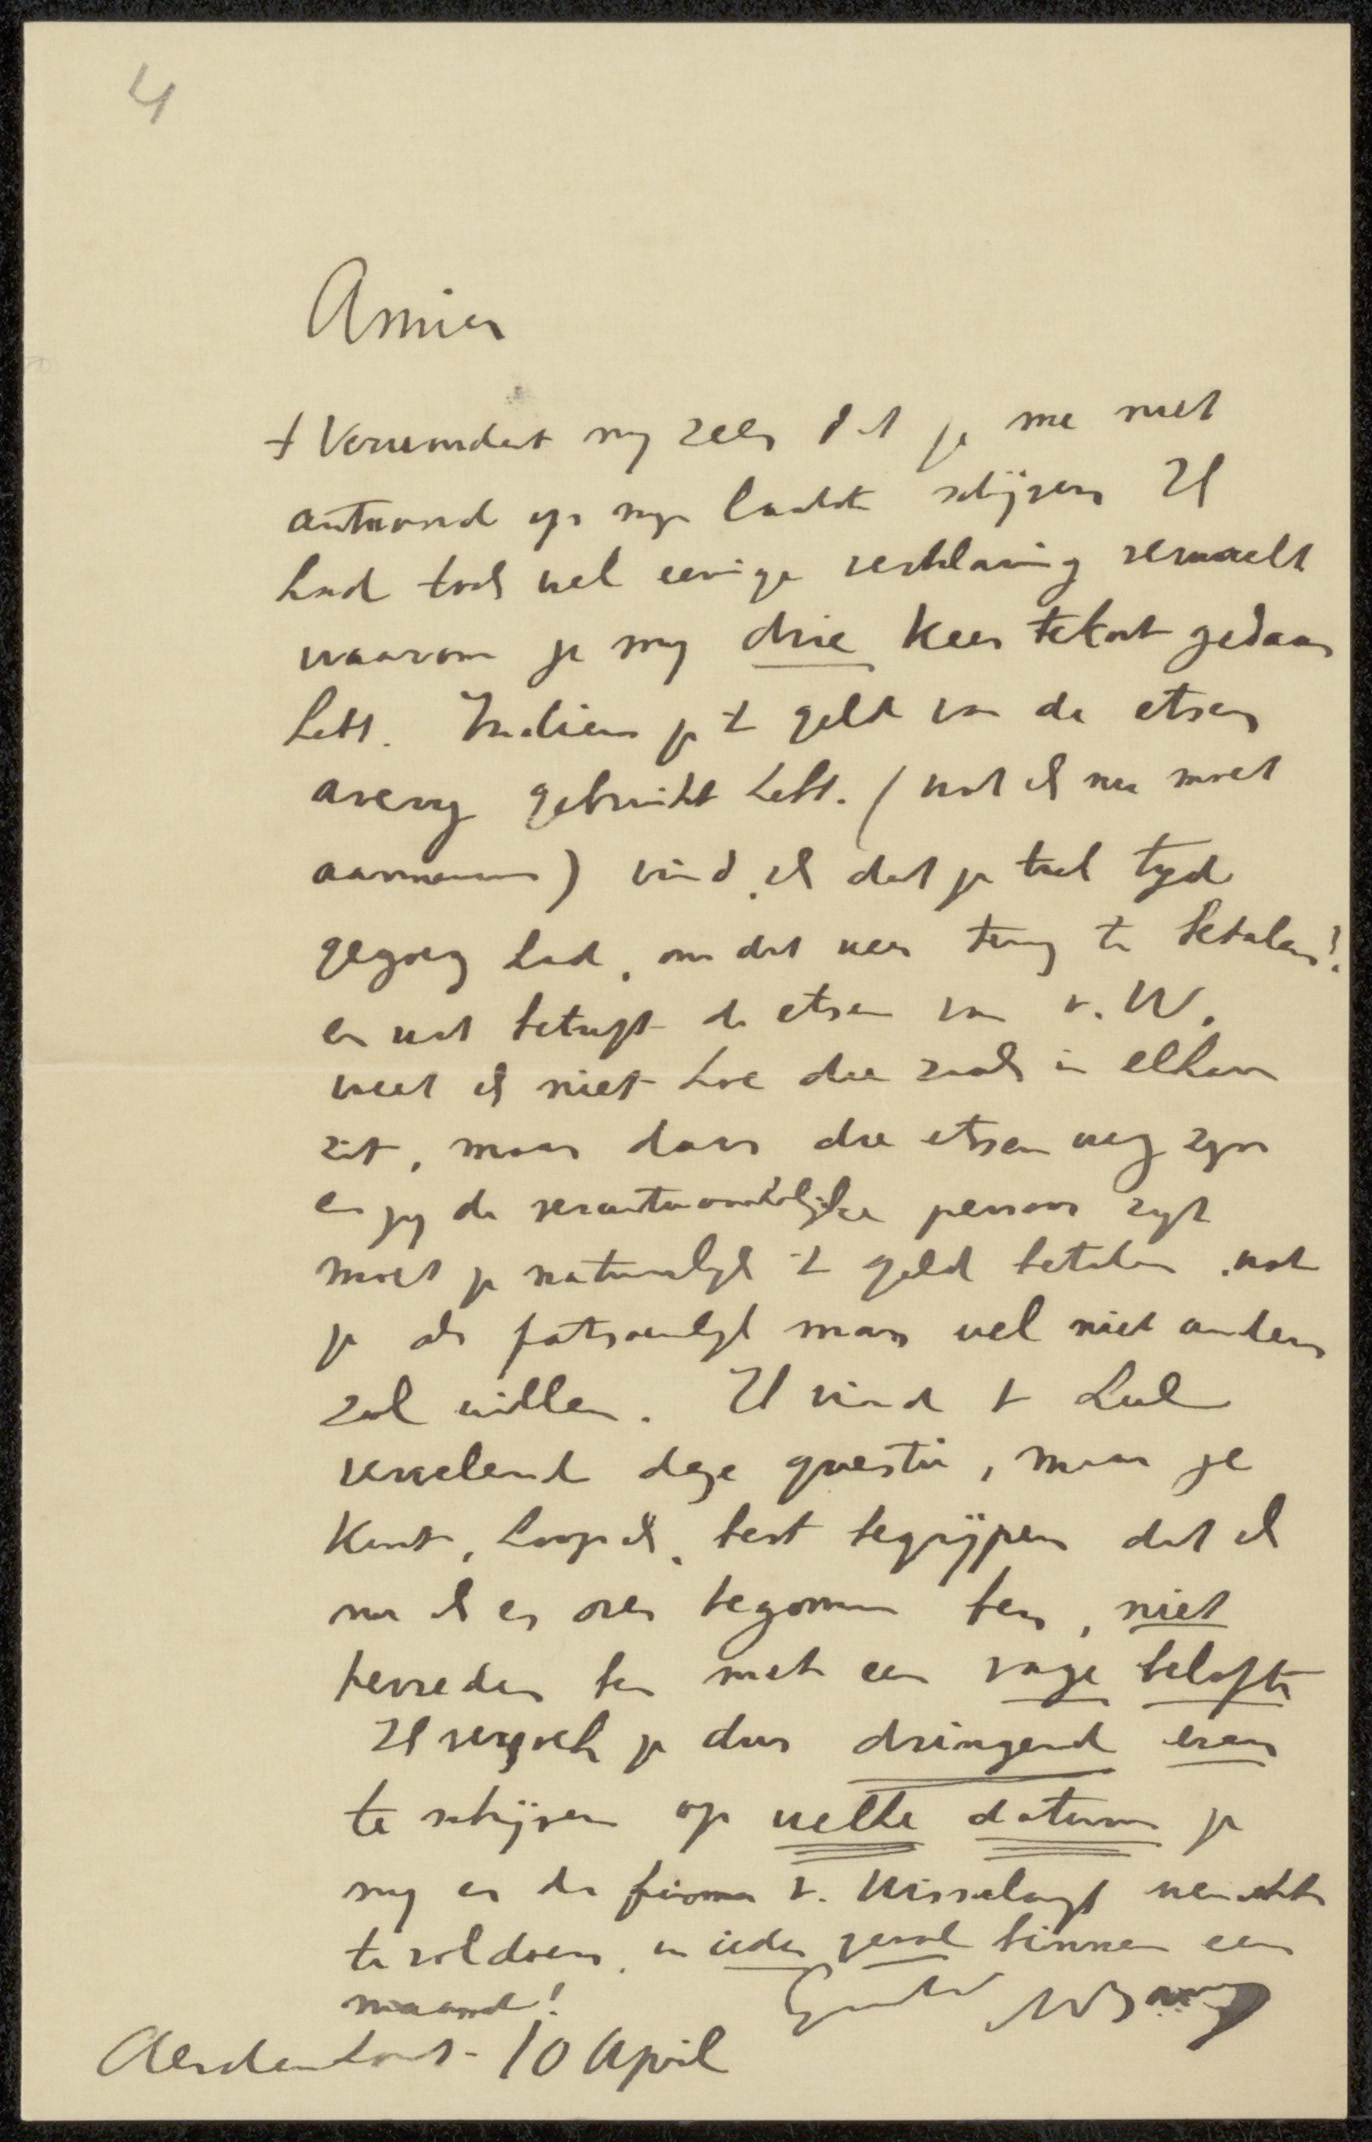 4
Amice
't Verwondert my zeer dat je me niet
antwoord op myn laatste schijven Ik
had toch wel eenige verklaring verwacht
waarom je my drie keer tekort gedaan
hebt. Indien je 't geld van de etsen
arery gebruikt hebt. (wat ik nu moet
aannemen) vind ik dat je tyd
gegoeg had, om dat weer terug te betalen!
en wat betreft de etsen van v. W.
weet ik niet hoe die zaak in elkaar
zit, maar daar die etsen weg zyn
en jy de verantwoordelijke persoon zyt
moet je natuurlyk 't geld betalen, wat
je als fatsoenlyk man wel niet anders
zal willen. Ik vind 't heel
vervelend deze questie, maar je
kunt, hoop ik, best begrijpen dat ik
nu ik er over begonnen ben, niet
tevreden ben met een vage belofte
Ik verzoek je dus dringend even
te schijven op welke datum je
my en de firma v. Wisselingh wenscht
te voldoen, in ieder geval binnen een
maand!
Aerdenhout - 10 April